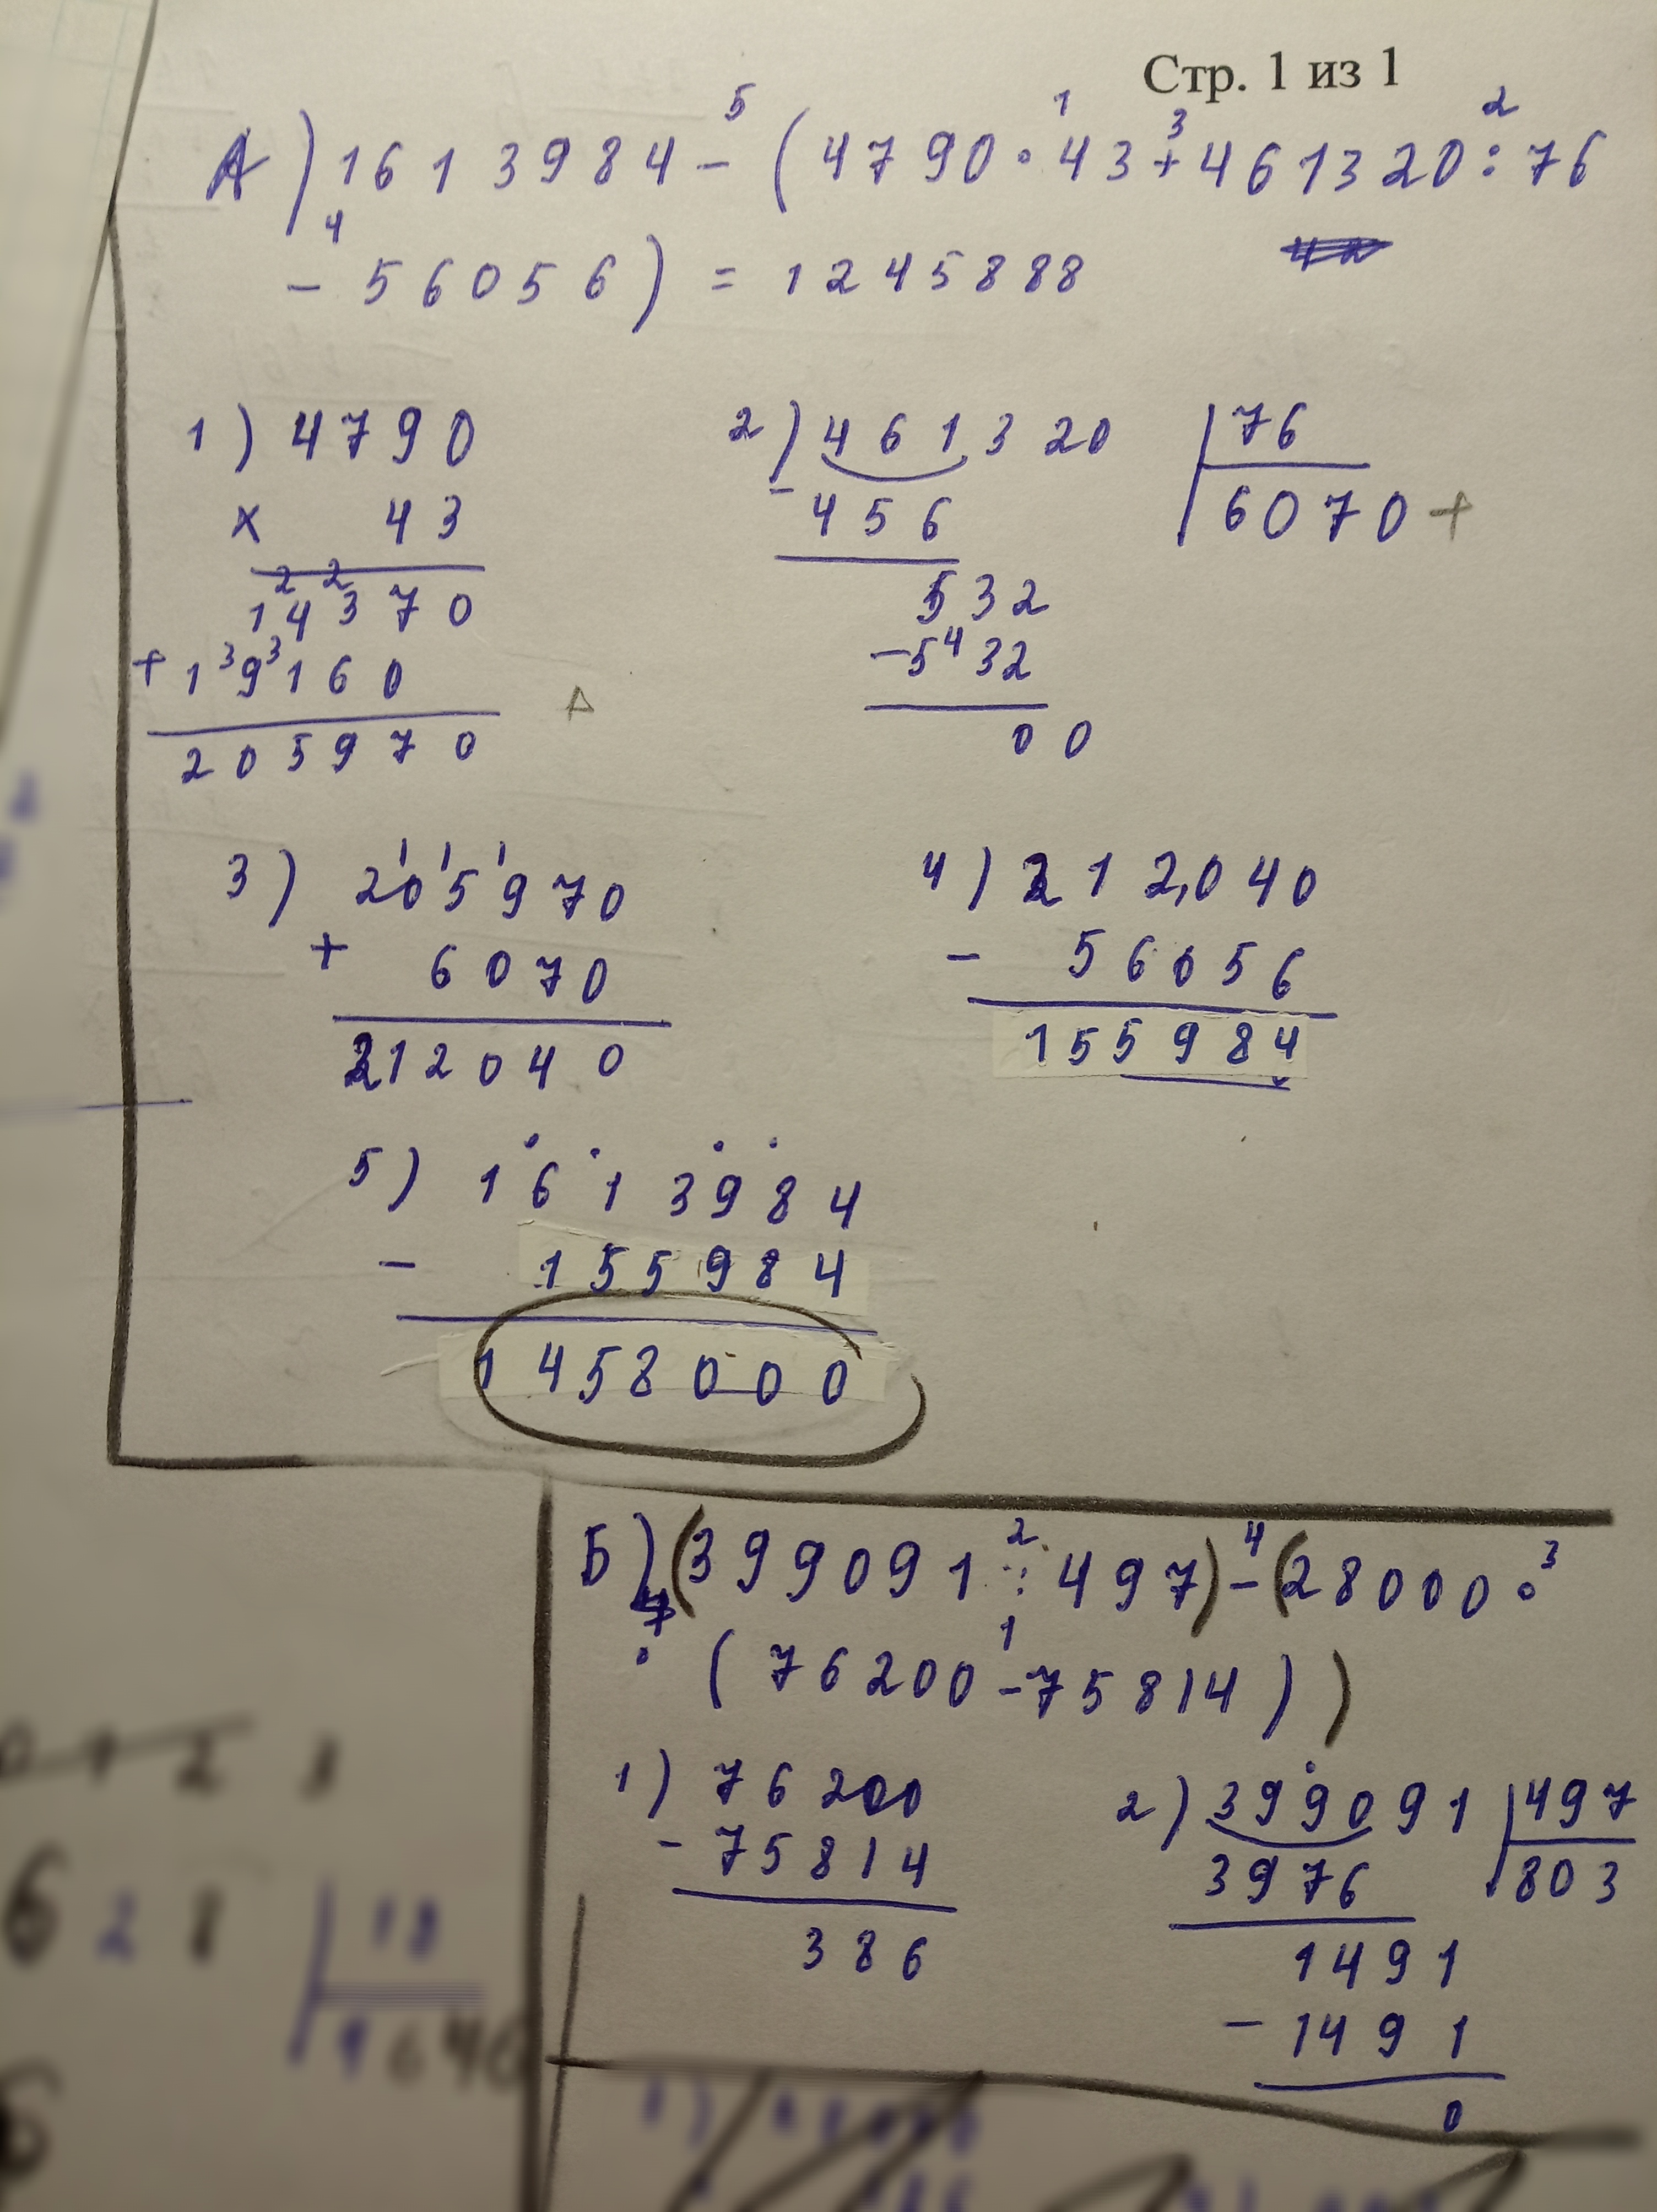 Стр. 1 из 1
5 1 3 2
А) 1613984 - (4790 · 43 + 461320 : 76
4
- 56056) = 1245888
1) 4790
× 43
2 2
14370
3 3
+ 19160
205970
2) 461320 | 76
- 456 | 6070 +
532
4
- 532
00
1 1 1
3) 205970
+ 6070
212040
4) 212,040
- 56056
155984
5) 1613984
- 155984
1458000
2 4 3
Б) (399091 : 497) - (28000 ·
1
· (76200 - 75814))
1) 76200
- 75814
386
2) 399091 | 497
3976 | 803
1491
- 1491
0